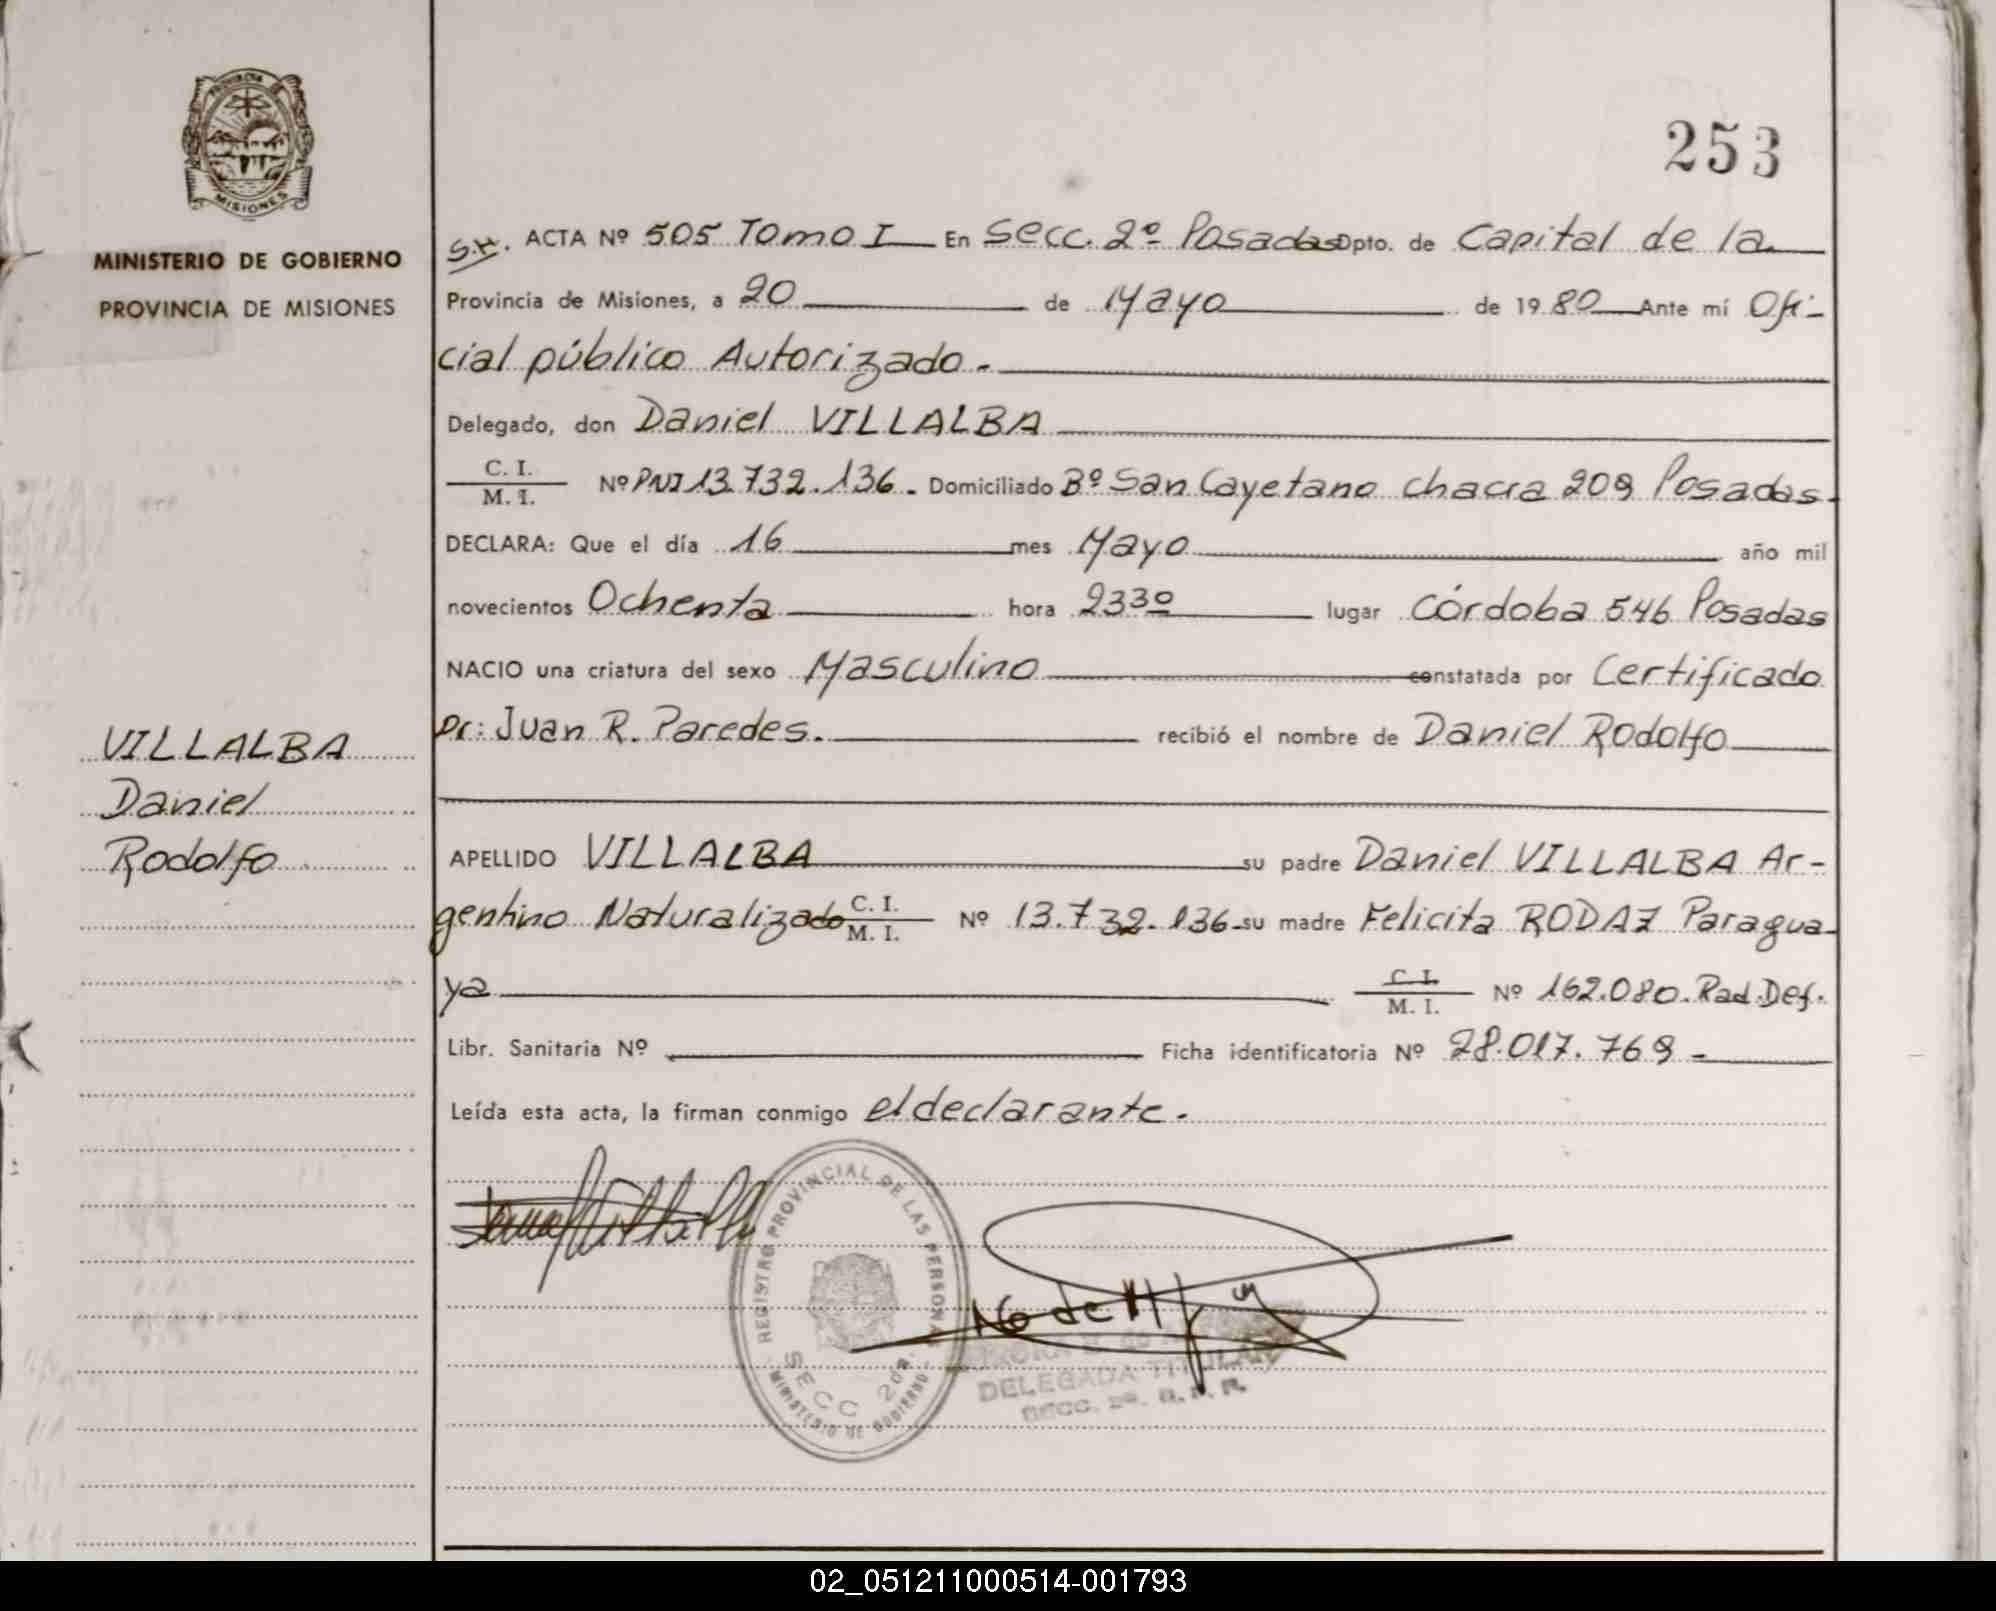 253
PROVINCIA
MISIONES
MINISTERIO DE GOBIERNO
PROVINCIA DE MISIONES
VILLALBA
Daniel
Rodolfo
S.H. ACTA Nº 505 Tomo I En Secc. 2º Posadas Dpto. de Capital de la
Provincia de Misiones, a 20 de Mayo de 1980 Ante mí Ofi-
cial público Autorizado.-
Delegado, don Daniel VILLALBA
C. I.
M. I. Nº DNI 13.732.136.- Domiciliado Bº San Cayetano chacra 209 Posadas-
DECLARA: Que el día 16 mes Mayo año mil
novecientos Ochenta hora 23³⁰ lugar Córdoba 546 Posadas
NACIO una criatura del sexo Masculino constatada por Certificado
Dr: Juan R. Paredes. recibió el nombre de Daniel Rodolfo
APELLIDO VILLALBA su padre Daniel VILLALBA Ar-
gentino Naturalizado C. I.
M. I. Nº 13.732.136- su madre Felicita RODAZ Paragua-
ya C. I.
M. I. Nº 162.080. Rad. Def.
Libr. Sanitaria Nº Ficha identificatoria Nº 28.017.769-
Leída esta acta, la firman conmigo el declarante.-
REGISTRO PROVINCIAL DE LAS PERSONAS
MINISTERIO DE GOBIERNO
SECC 2da.
DELEGADA TITULAR
SECC. 2ª. R. P. P.
02_051211000514-001793